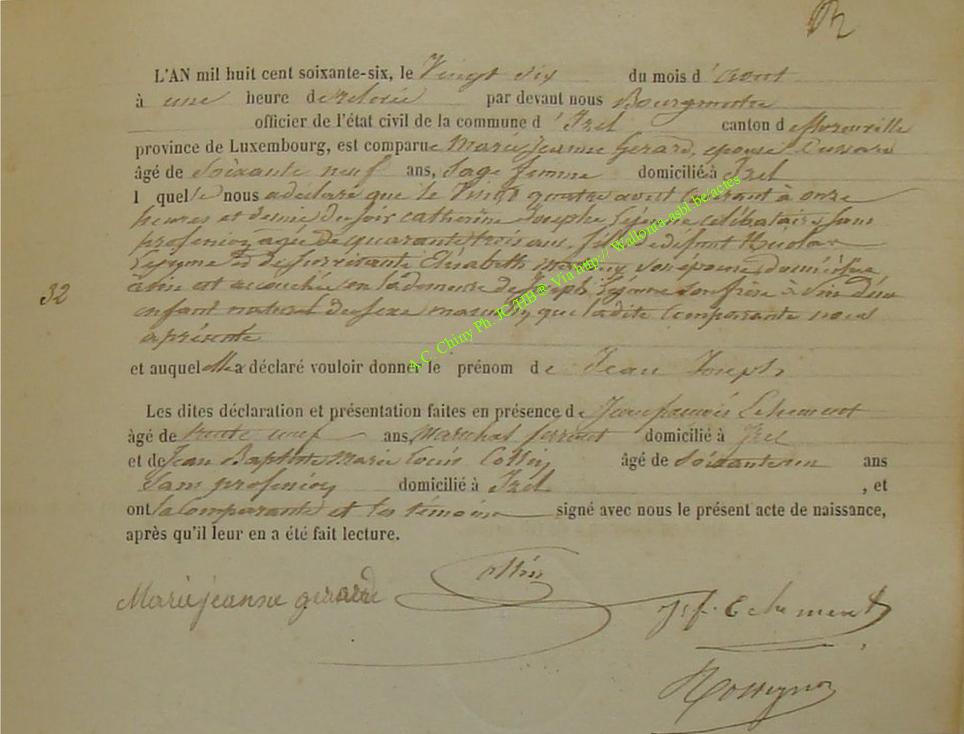 L'AN mil huit cent soixante-six, le Vingt six du mois d'août
à une heure de relevée par devant nous Bourgmestre
officier de l'état civil de la commune d'Izel canton de
province de Luxembourg, est comparue Marie jeanne Gerard, epouse
âgé de Soixante neuf ans, Sage femme domicilié à Izel
l quelle nous a déclaré que le Vingt quatre août courant à onze
heures et demie du soir catherine célibataire, sans
profession, agée de quarante trois ans, fille de defunt Nicolas
et de Survivante Elisabeth son épouse,
est accouchée en la demeure de son frère à d'un
enfant naturel du sexe masculin, que ladite Comparante nous
a présenté
32
et auquel elle a déclaré vouloir donner le prénom de Jean Joseph
Les dites déclaration et présentation faites en présence de Jean françois Echement
âgé de trente neuf ans Maréchal ferrant domicilié à Izel
et de Jean Baptiste Marie Louis Collin âgé de Soixante un ans
Sans profession domicilié à Izel , et
ont la Comparante et les témoins signé avec nous le présent acte de naissance,
après qu'il leur en a été fait lecture.
Collin
Marie jeanne gerard
J: f. Echement
Rossignon
A.C. Chiny Ph. JC.HB @ Via http:// Wallonia-asbl.be/actes